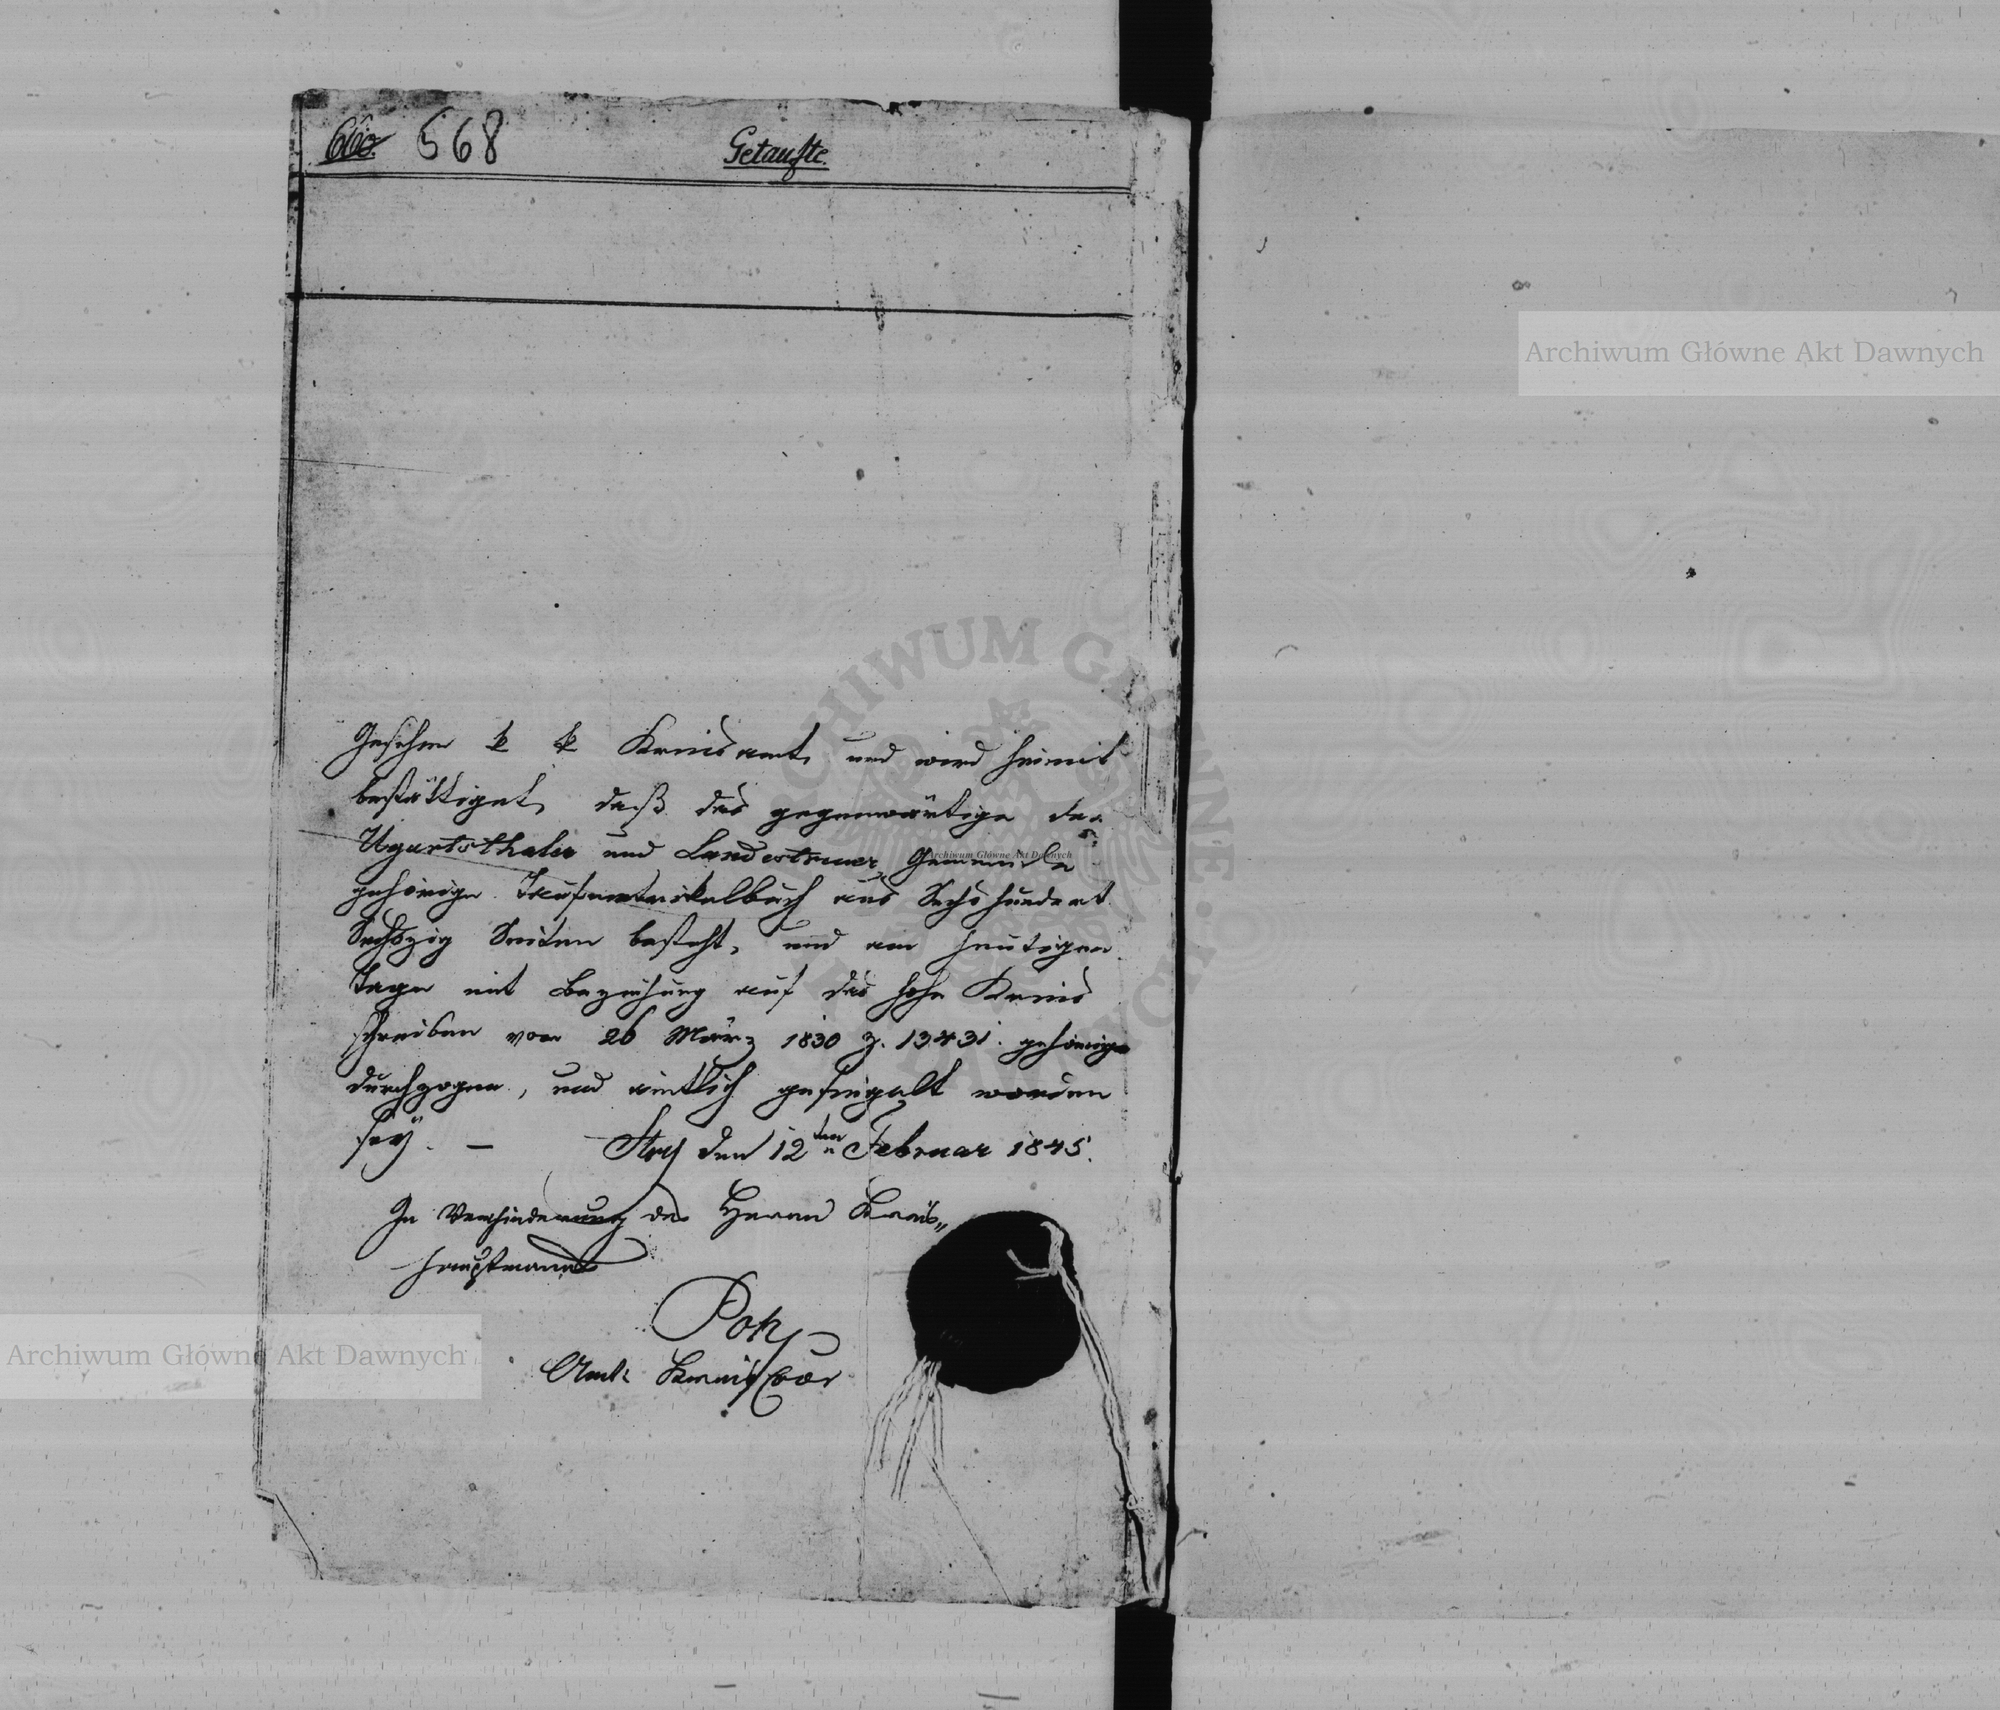 660. 568 Getaufte.
Gesehen k k Kreisamt, und wird hiemit
bestättiget, daß das gegenwärtige der
Ugartsthaler und Landestreuer Gemeinde
gehörige Taufmatrikelbuch aus Sechshundert
Sechszig Seiten besteht, und am heutigen
Tage mit Beziehung auf das hohe Kreis
schreiben vom 26 März 1830 Z. 13431. gehörig
durchzogen, und amtlich gesiegelt worden
sey. — Stry den 12ten Februar 1845.
In Verhinderung des Herrn Kreis„
hauptmanns
Kreis
Archiwum Główne Akt Dawnych
Archiwum Główne Akt Dawnych
Archiwum Główne Akt Dawnych